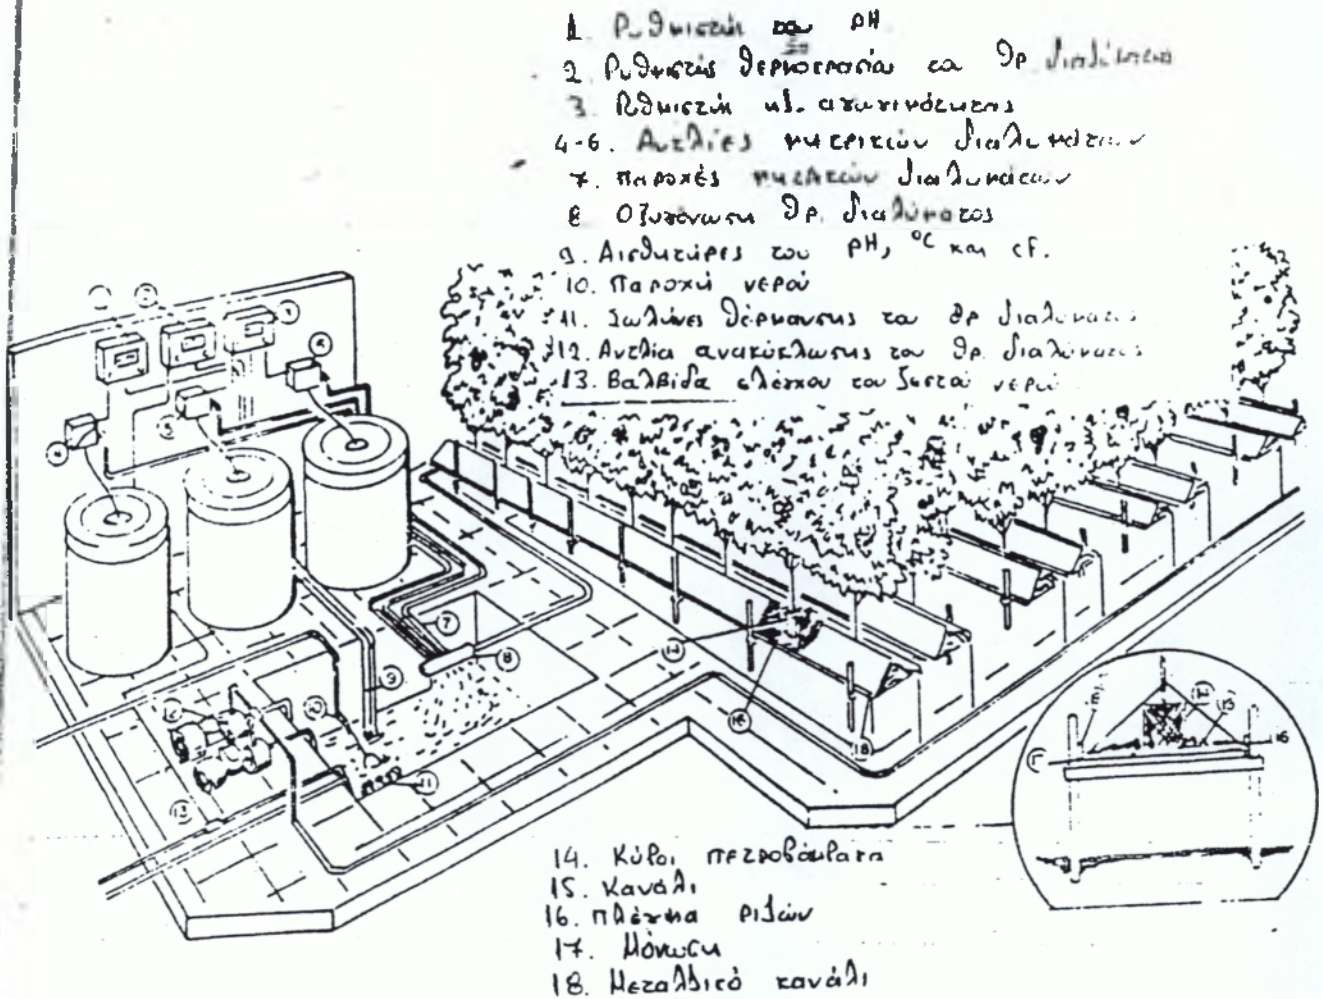 1 Ρυθμιστής του pH
2 Ρυθμιστής θερμοκρασίας του θρ διαλύματος
3. Ρυθμιστής
4-6. Αντλίες μητρικών διαλυμάτων
7. Παροχές μητρικών διαλυμάτων
8 Οξυγόνωση θρ. διαλύματος
9. Αισθητήρες του pH, °C και cF.
10. Παροχή νερού
11. Σωλήνες θέρμανσης του θρ διαλύματος
12. Αντλία ανακύκλωσης του θρ. διαλύματος
13. Βαλβίδα ελέγχου του ζεστού νερού
6
5
4
7
8
9
14
12
10
16
18
11
13
14
15
16
14. Κύβοι πετροβάμβακα
15. Κανάλι
16. Πλέγμα ριζών
17. Μόνωση
18. Μεταλλικό κανάλι